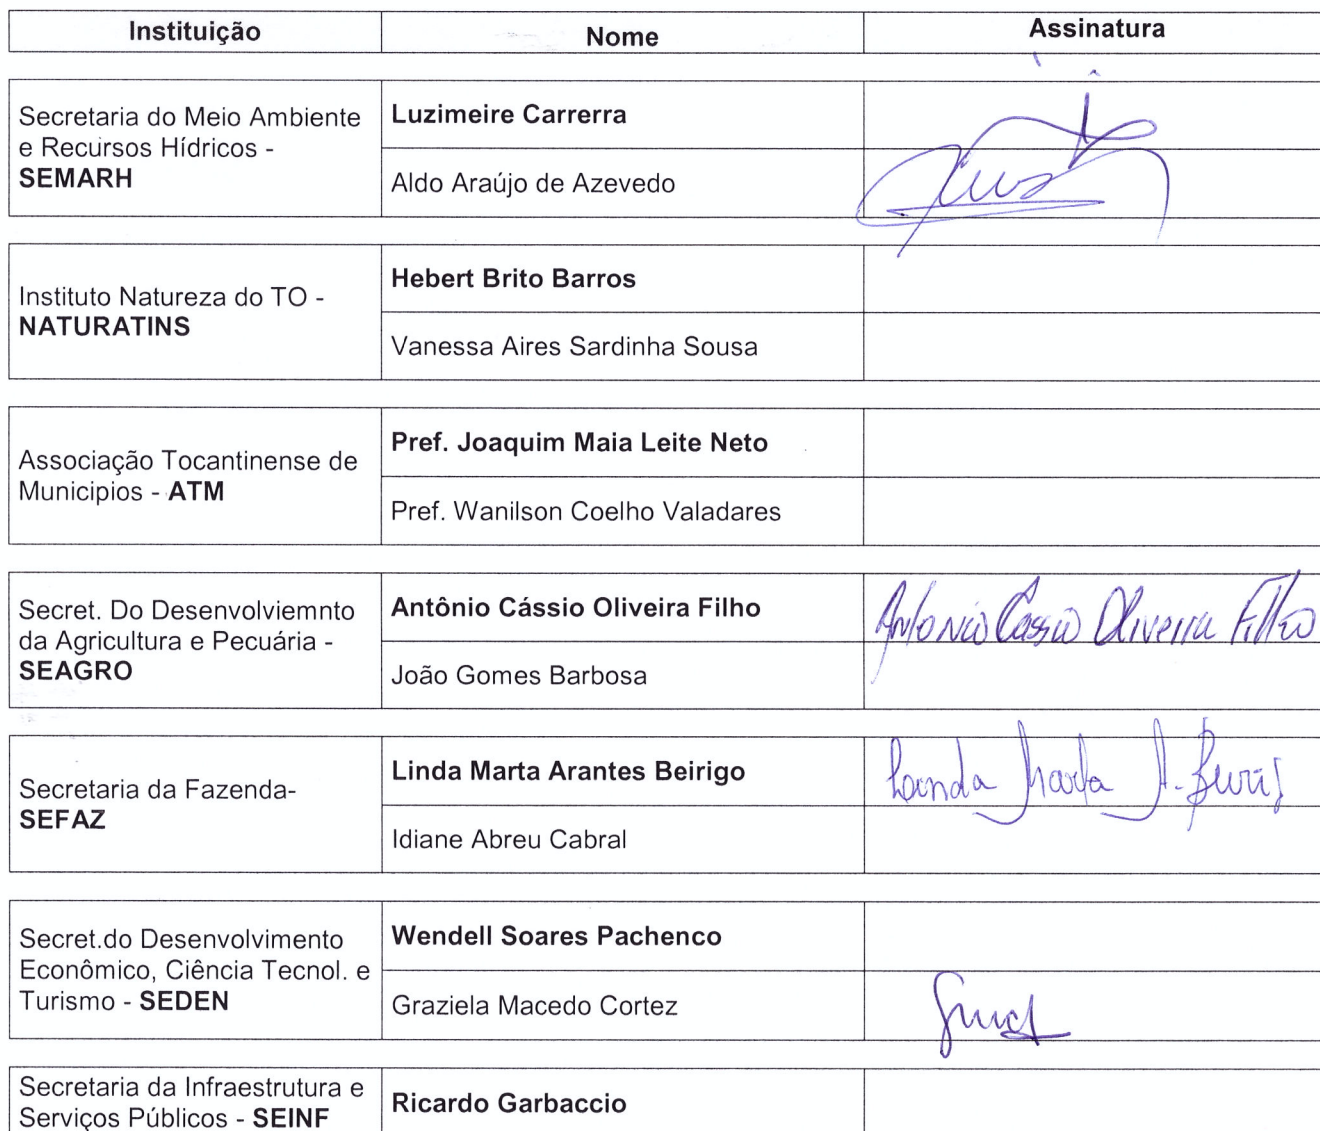 Instituição Nome Assinatura
Secretaria do Meio Ambiente
e Recursos Hídricos -
SEMARH
Luzimeire Carrerra
Aldo Araújo de Azevedo
Instituto Natureza do TO -
NATURATINS
Hebert Brito Barros
Vanessa Aires Sardinha Sousa
Associação Tocantinense de
Municipios - ATM
Pref. Joaquim Maia Leite Neto
Pref. Wanilson Coelho Valadares
Secret. Do Desenvolviemnto
da Agricultura e Pecuária -
SEAGRO
Antônio Cássio Oliveira Filho
Antonio Cassio Oliveira Filho
João Gomes Barbosa
Secretaria da Fazenda-
SEFAZ
Linda Marta Arantes Beirigo
Linda Marta A.
Idiane Abreu Cabral
Secret.do Desenvolvimento
Econômico, Ciência Tecnol. e
Turismo - SEDEN
Wendell Soares Pachenco
Graziela Macedo Cortez
Secretaria da Infraestrutura e
Serviços Públicos - SEINF
Ricardo Garbaccio